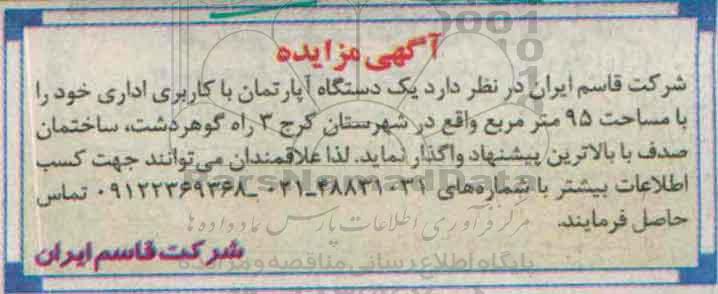 آگهی مزایده
شرکت قاسم ایران در نظر دارد یک دستگاه آپارتمان با کاربری اداری خود را
با مساحت ۹۵ متر مربع واقع در شهرستان کرج ۳ راه گوهردشت، ساختمان
صدف با بالاترین پیشنهاد واگذار نماید. لذا علاقمندان می‌توانند جهت کسب
اطلاعات بیشتر با شماره‌های ۴۸۸۳۱۰۳۱-۰۲۱ - ۰۹۱۲۲۳۶۹۳۶۸ تماس
حاصل فرمایند.
شرکت قاسم ایران
ParsNamadData
مرکز فرآوری اطلاعات پارس نماد داده ها
پایگاه اطلاع رسانی مناقصه و مزایده